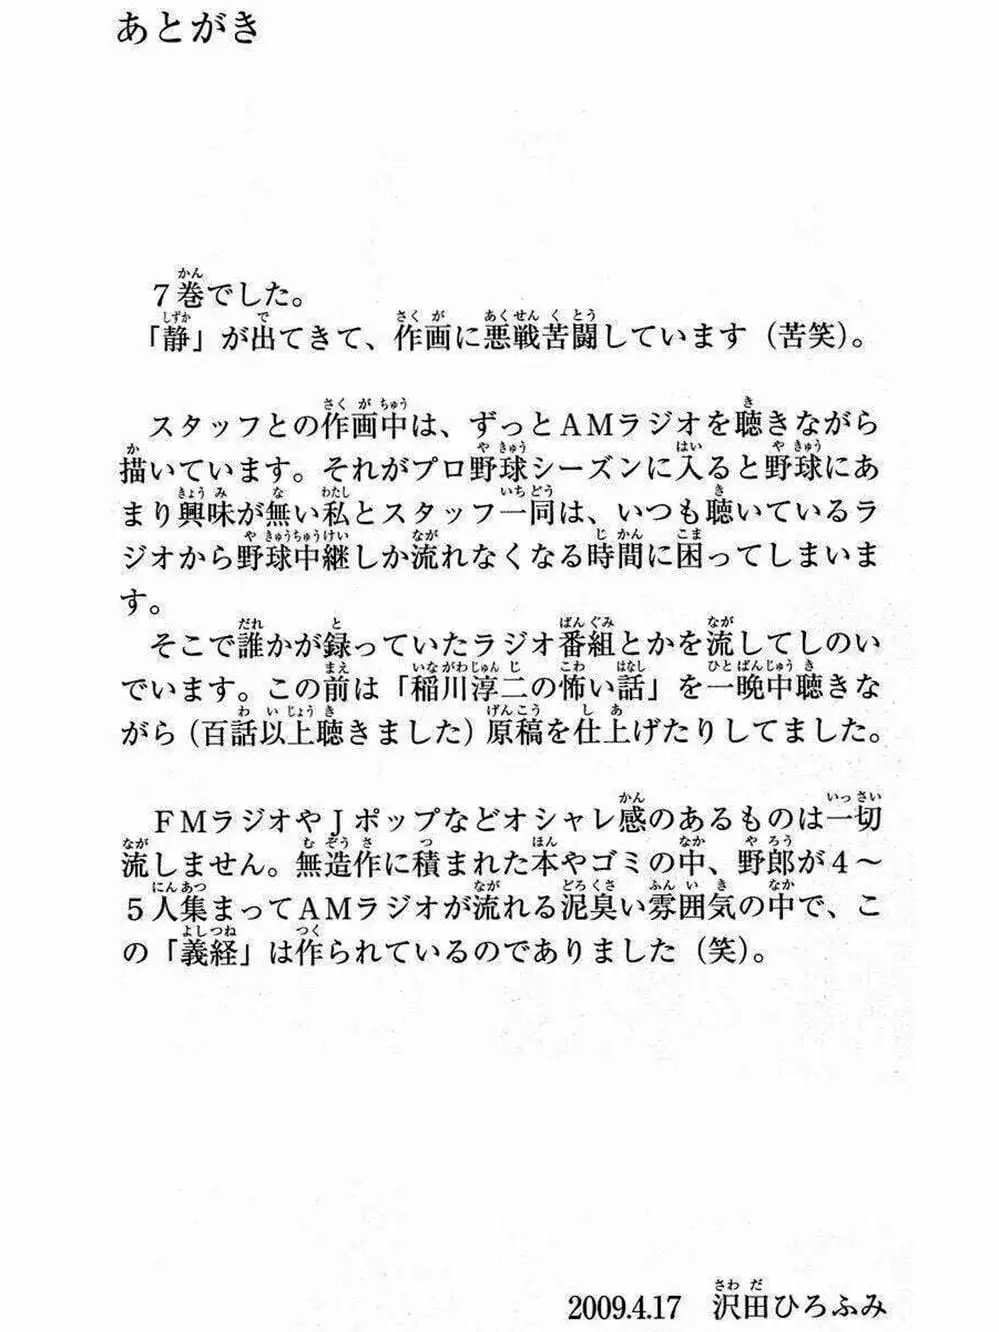 あとがき
７巻でした。
「静」が出てきて、作画に悪戦苦闘しています（苦笑）。
スタッフとの作画中は、ずっとＡＭラジオを聴きながら
描いています。それがプロ野球シーズンに入ると野球にあ
まり興味が無い私とスタッフ一同は、いつも聴いているラ
ジオから野球中継しか流れなくなる時間に困ってしまいま
す。
そこで誰かが録っていたラジオ番組とかを流してしのい
でいます。この前は「稲川淳二の怖い話」を一晩中聴きな
がら（百話以上聴きました）原稿を仕上げたりしてました。
ＦＭラジオやＪポップなどオシャレ感のあるものは一切
流しません。無造作に積まれた本やゴミの中、野郎が４～
５人集まってＡＭラジオが流れる泥臭い雰囲気の中で、こ
の「義経」は作られているのでありました（笑）。
2009.4.17　沢田ひろふみ